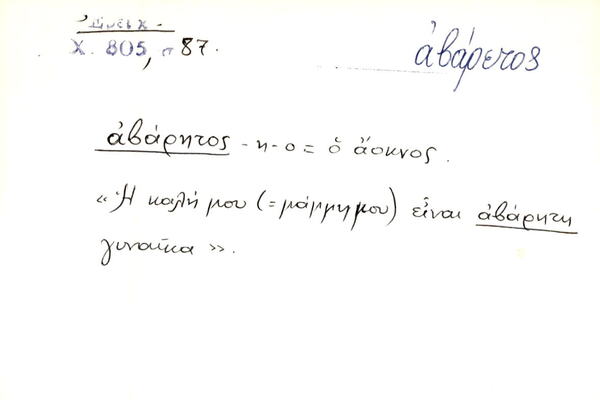 Ἤπειχ.
Χ. 805, σ 87.
ἀβάρετος
ἀβάρητος - η - ο = ὁ ἄοκνος.
« Ἡ καλή μου (= μάμμη μου) εἶναι ἀβάρητη
γυναῖκα ».